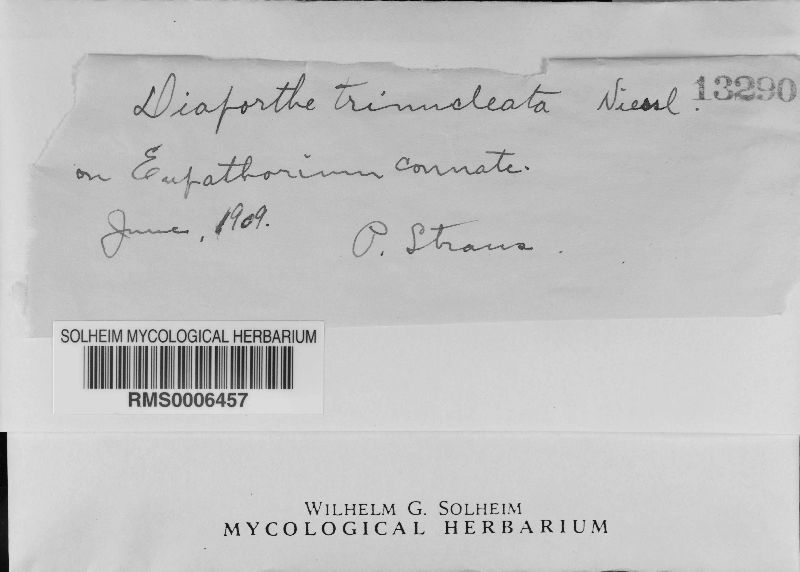 Diaporthe trinucleata Niessl. 13290
on Eupathorium connate.
June, 1909.
P. Straus.
SOLHEIM MYCOLOGICAL HERBARIUM
RMS0006457
WILHELM G. SOLHEIM
MYCOLOGICAL HERBARIUM